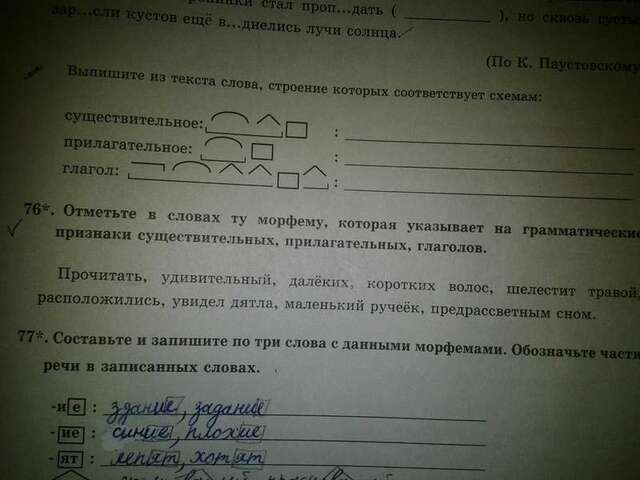 стал проп...дать ( ), но сквозь густы
зар...сли кустов ещё в...днелись лучи солнца.
(По К. Паустовскому
Выпишите из текста слова, строение которых соответствует схемам:
существительное: :
прилагательное: :
глагол: :
76*. Отметьте в словах ту морфему, которая указывает на грамматические
признаки существительных, прилагательных, глаголов.
Прочитать, удивительный, далёких, коротких волос, шелестит травой,
расположились, увидел дятла, маленький ручеёк, предрассветным сном.
77*. Составьте и запишите по три слова с данными морфемами. Обозначьте части
речи в записанных словах.
-ие : здание, задание
-ие : синие, плохие
-ят : лепят, хотят